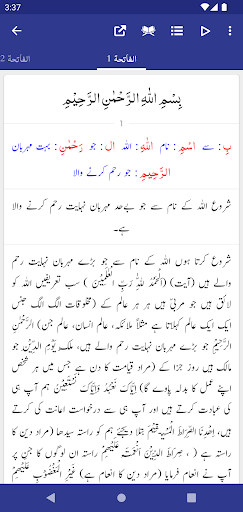 3:37
الفاتحة 1
الفاتحة 2
بِسْمِ اللهِ الرَّحْمٰنِ الرَّحِيْمِ
1
بِ: سے اسْمِ: نام اللهِ: اللہ ال: جو رَحْمٰنِ: بہت مہربان
الرَّحِيْمِ: جو رحم کرنے والا
شروع اللہ کے نام سے جو بےحد مہربان نہایت رحم کرنے والا
ہے۔
شروع کرتا ہوں اللہ کے نام سے جو بڑے مہربان نہایت رحم
والے ہیں (آیت) (اَلْحَمْدُ لِلّٰهِ رَبِّ الْعٰلَمِيْنَ ) سب تعریفیں اللہ کو
لائق ہیں جو مربی ہیں ہر ہر عالم کے (مخلوقات الگ الگ جنس
ایک ایک عالم کہلاتا ہے مثلاً ملائکہ، عالم انسان، عالم جن) الرَّحْمٰنِ
الرَّحِيْمِ جو بڑے مہربان نہایت رحم والے ہیں، ملک يَوْمِ الدِّيْنِ جو
مالک ہیں روز جزا کے (مراد قیامت کا دن ہے جس میں ہر شخص
اپنے عمل کا بدلہ پاوے گا) اِيَّاكَ نَعْبُدُ وَاِيَّاكَ نَسْتَعِيْنُ ہم آپ ہی
کی عبادت کرتے ہیں اور آپ ہی سے درخواست اعانت کی کرتے
ہیں، اِهْدِنَا الصِّرَاطَ الْمُسْتَقِيْمَ بتلا دیجئے ہم کو راستہ سیدھا (مراد دین کا
راستہ ہے) ، صِرَاطَ الَّذِيْنَ اَنْعَمْتَ عَلَيْهِمْ راستہ ان لوگوں کا جن پر
آپ نے انعام فرمایا (مراد دین کا انعام ہے) غَيْرِ الْمَغْضُوْبِ عَلَيْهِمْ